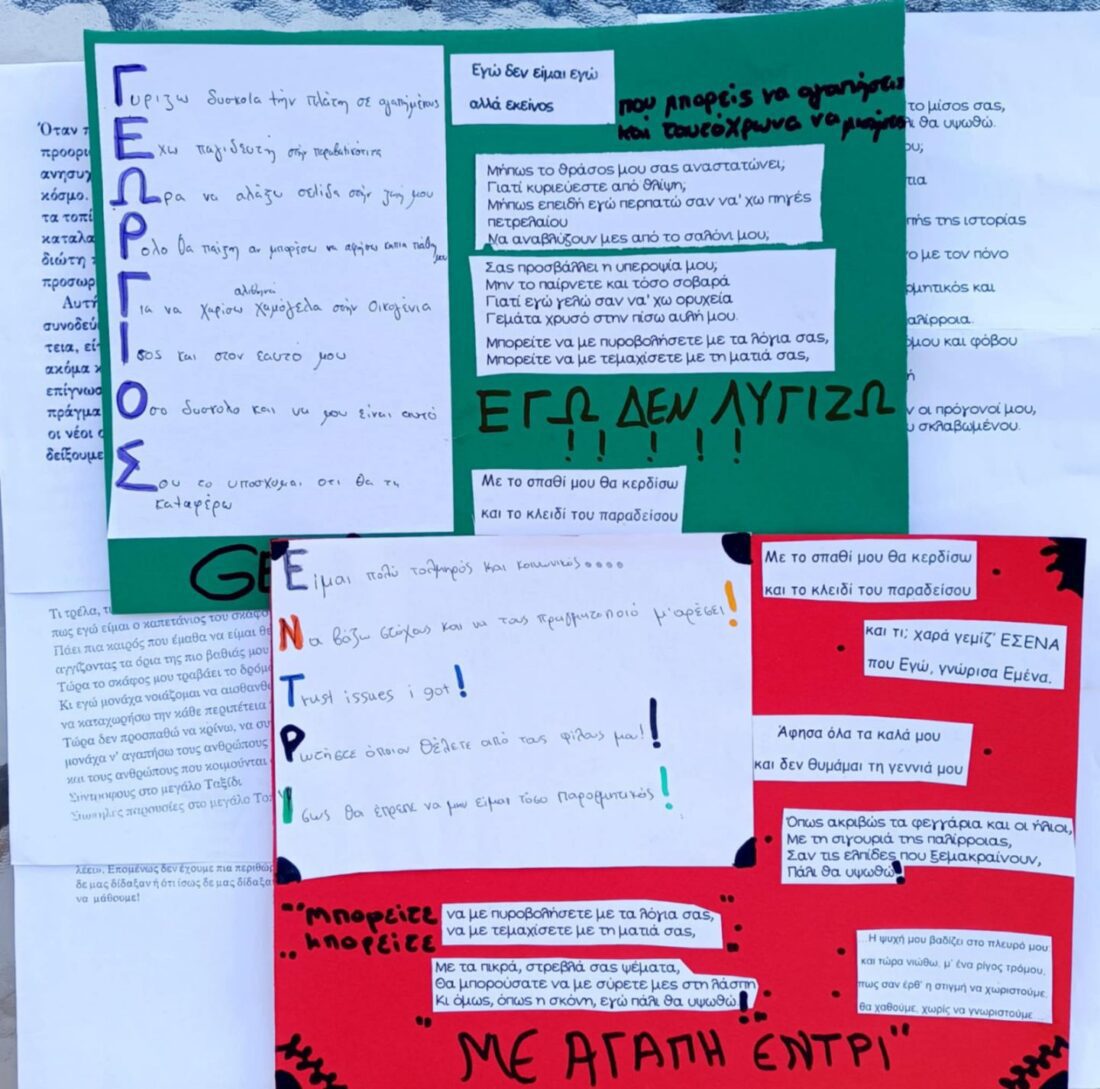 ΓΥΡΙΖΩ δυσκολα την πλάτη σε αγαπημένους
Εχω παγιδευτη στην παραβατικότητα
Ωρα να αλάξω σελίδα στην ζωή μου
Ρολο θα παίξη αν μπορέσω να αφήσω καπια πάθη μου
αλιθηνά
Για να χαρίσω χαμόγελα στην Οικογένια
Ισος και στον εαυτό μου
Οσο δυσκολο και να μου είναι αυτό
Σου το υποσχομαι οτι θα τα
καταφέρω
Εγώ δεν είμαι εγώ
αλλά εκείνος
που μπορείς να αγαπήσεις
και ταυτόχρωνα να μισήσεις
Μήπως το θράσος μου σας αναστατώνει;
Γιατί κυριεύεστε από θλίψη;
Μήπως επειδή εγώ περπατώ σαν να' χω πηγές
πετρελαίου
Να αναβλύζουν μες από το σαλόνι μου;
Σας προσβάλλει η υπεροψία μου;
Μην το παίρνετε και τόσο σοβαρά
Γιατί εγώ γελώ σαν να' χω ορυχεία
Γεμάτα χρυσό στην πίσω αυλή μου.
Μπορείτε να με πυροβολήσετε με τα λόγια σας,
Μπορείτε να με τεμαχίσετε με τη ματιά σας,
ΕΓΩ ΔΕΝ ΛΥΓΙΖΩ
! ! ! ! !
Με το σπαθί μου θα κερδίσω
και το κλειδί του παραδείσου
GE
Είμαι πολύ τολμηρός και κοινωνικός....
Να βάζω στόχους και να τους πραγματοποιό μ'αρέσει!
Trust issues i got!
Ρωτήστε όποιον θέλετε από τους φίλους μου!!
Ίσως θα έπρεπε να μην είμαι τόσο παρορμητικός!
Με το σπαθί μου θα κερδίσω
και το κλειδί του παραδείσου
και τι; χαρά γεμίζ' ΕΣΕΝΑ
που Εγώ, γνώρισα Εμένα.
Άφησα όλα τα καλά μου
και δεν θυμάμαι τη γεννιά μου
Όπως ακριβώς τα φεγγάρια και οι ήλιοι,
Με τη σιγουριά της παλίρροιας,
Σαν τις ελπίδες που ξεμακραίνουν,
Πάλι θα υψωθώ!
"Μπορείτε να με πυροβολήσετε με τα λόγια σας,
Μπορείτε να με τεμαχίσετε με τη ματιά σας,
Με τα πικρά, στρεβλά σας ψέματα,
Θα μπορούσατε να με σύρετε μες στη λάσπη
Κι όμως, όπως η σκόνη, εγώ πάλι θα υψωθώ!
...Η ψυχή μου βαδίζει στο πλευρό μου
και τώρα νιώθω, μ' ένα ρίγος τρόμου,
πως σαν έρθ' η στιγμή να χωριστούμε,
θα χαθούμε, χωρίς να γνωριστούμε ...
"ΜΕ ΑΓΑΠΗ ΕΝΤΡΙ"
Όταν
προορι
ανησυχ
κόσμο.
τα τοπί
καταλα
διώτη
προσωρ
Αυτή
συνοδεύ
τεια, εί
ακόμα
επίγνωσ
πράγμα
οι νέοι
δείξουμε
το μίσος σας,
θα υψωθώ.
της ιστορίας
με τον πόνο
και
αλίρροια.
και φόβου
οι πρόγονοί μου,
σκλαβωμένου.
Τι τρέλα,
πως εγώ είμαι ο καπετάνιος του σκάφο
Πάει πια καιρός που έμαθα να είμαι θε
αγγίζοντας τα όρια της πιο βαθιάς μου
Τώρα το σκάφος μου τραβάει το δρόμο
Κι εγώ μονάχα νοιάζομαι να αισθανθώ
να καταχωρήσω την κάθε περιπέτεια
Τώρα δεν προσπαθώ να κρίνω, να συ
μονάχα ν' αγαπήσω τους ανθρώπους
και τους ανθρώπους που κοιμούνται
Σύντροφους στο μεγάλο Ταξίδι
Σιωπηλές παρουσίες στο μεγάλο
λέει». Επομένως δεν έχουμε πια περιθώ
δε μας δίδαξαν ή ότι ίσως δε μας δίδαξα
να μάθουμε!